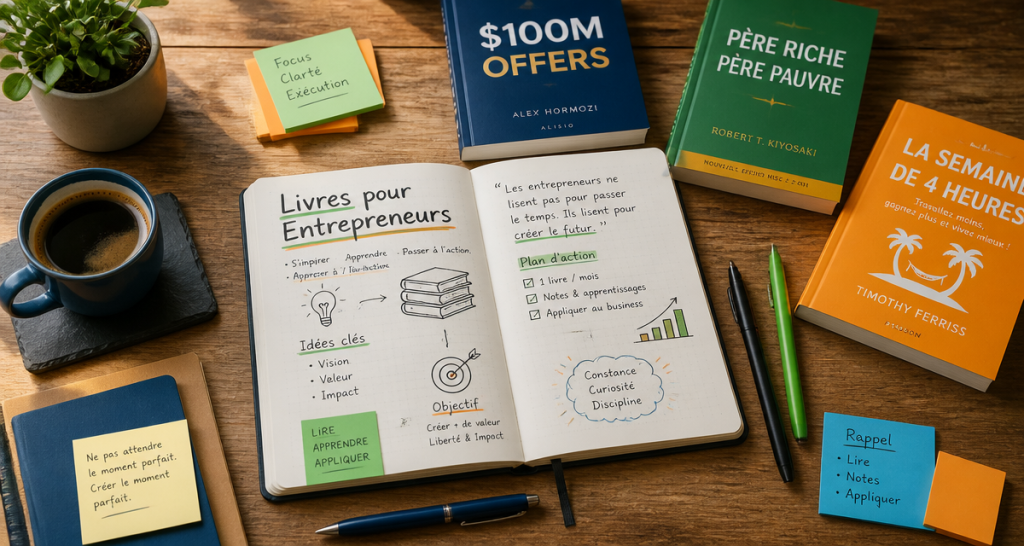 Focus
Clarté
Exécution
$100M
OFFERS
ALEX HORMOZI
ALISIO
PÈRE RICHE
PÈRE PAUVRE
ROBERT T. KIYOSAKI
LA SEMAINE
DE 4 HEURES
Travaillez moins,
gagnez plus et vivez mieux !
TIMOTHY FERRISS
Livres pour
Entrepreneurs
• S'inspirer Apprendre - Passer à l'action.
Idées clés
• Vision
• Valeur
• Impact
Objectif
Créer + de valeur
Liberté & Impact
LIRE
APPRENDRE
APPLIQUER
“ Les entrepreneurs ne
lisent pas pour passer
le temps. Ils lisent pour
créer le futur. ”
Plan d'action
1 livre / mois
Notes & apprentissages
Appliquer au business
Constance
Curiosité
Discipline
Ne pas attendre
le moment parfait.
Créer le moment
parfait.
Rappel
• Lire
• Notes
• Appliquer